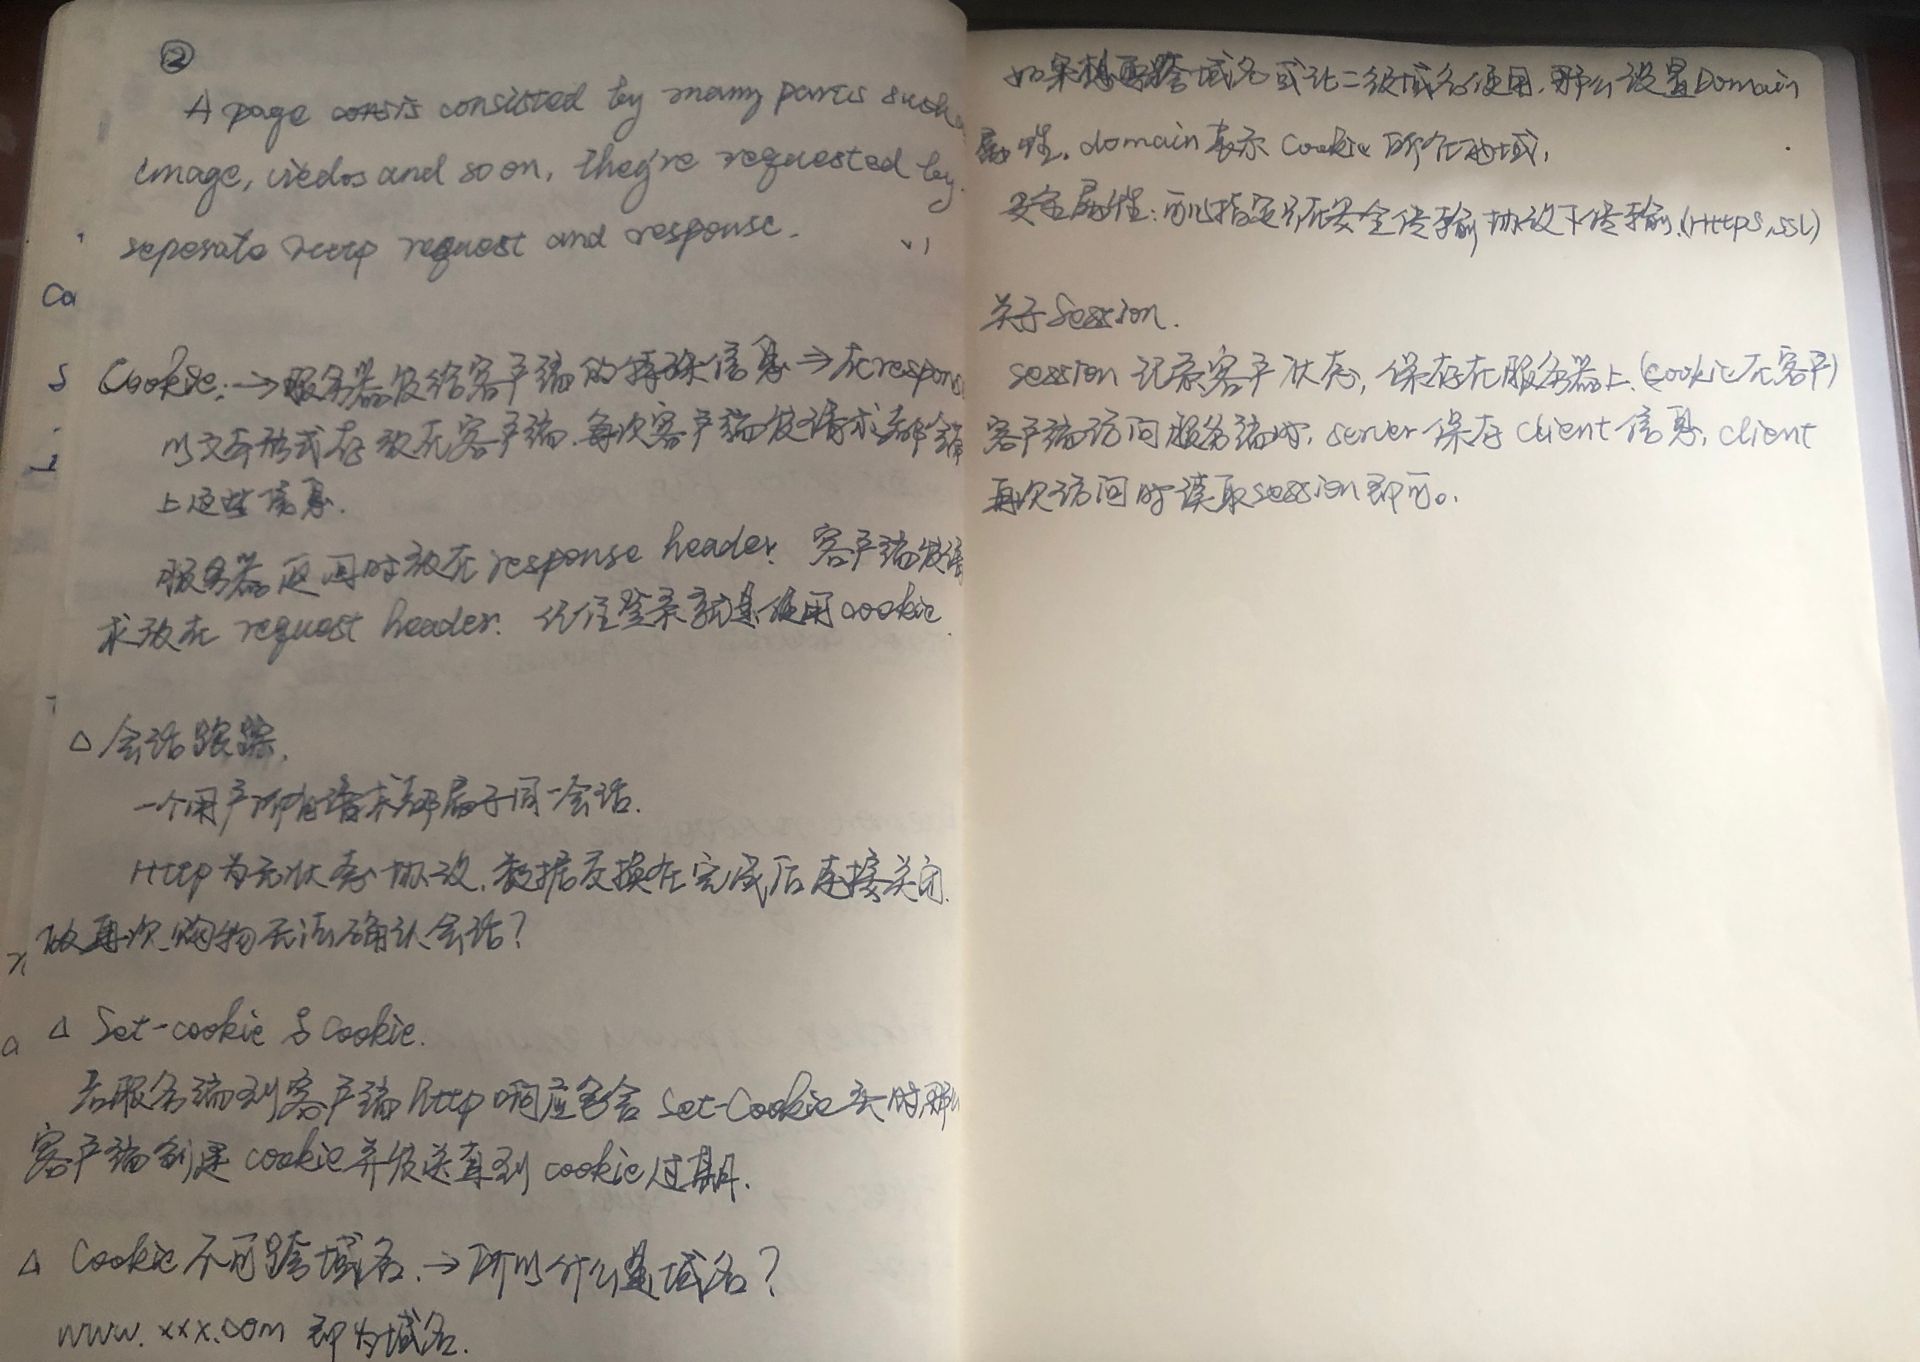 ②
A page consis consisted by many parts such
image, viedos and so on, they're requested by
seperate Http request and response.
Ca
S Cookie: → 服务器发给客户端的特殊信息 → 在respons
以文本形式存放在客户端. 每次客户端发请求都会
上这些信息.
服务器返回时放在 response header. 客户端发请
求放在 request header. 记住登录就是使用 cookie.
△ 会话跟踪.
一个用户所有请求都属于同一会话.
Http为无状态协议, 数据交换在完成后连接关闭.
故再次购物无法确认会话?
a △ Set-cookie 与 Cookie.
若服务端到客户端 Http 响应包含 Set-Cookie 头时,那
客户端创建 cookie 并发送直到 cookie 过期.
△ Cookie 不可跨域名. → 所以什么是域名?
www.xxx.com 即为域名.
如果想要跨域名或让二级域名使用, 那么设置Domain
属性, domain 表示 Cookie 所在的域,
安全属性: 可以指定只在安全传输协议下传输.(Https,SSL)
关于Session.
session 记录客户状态, 保存在服务器上.(cookie在客户)
客户端访问服务端时, server 保存 client 信息, client
再次访问时读取session即可。